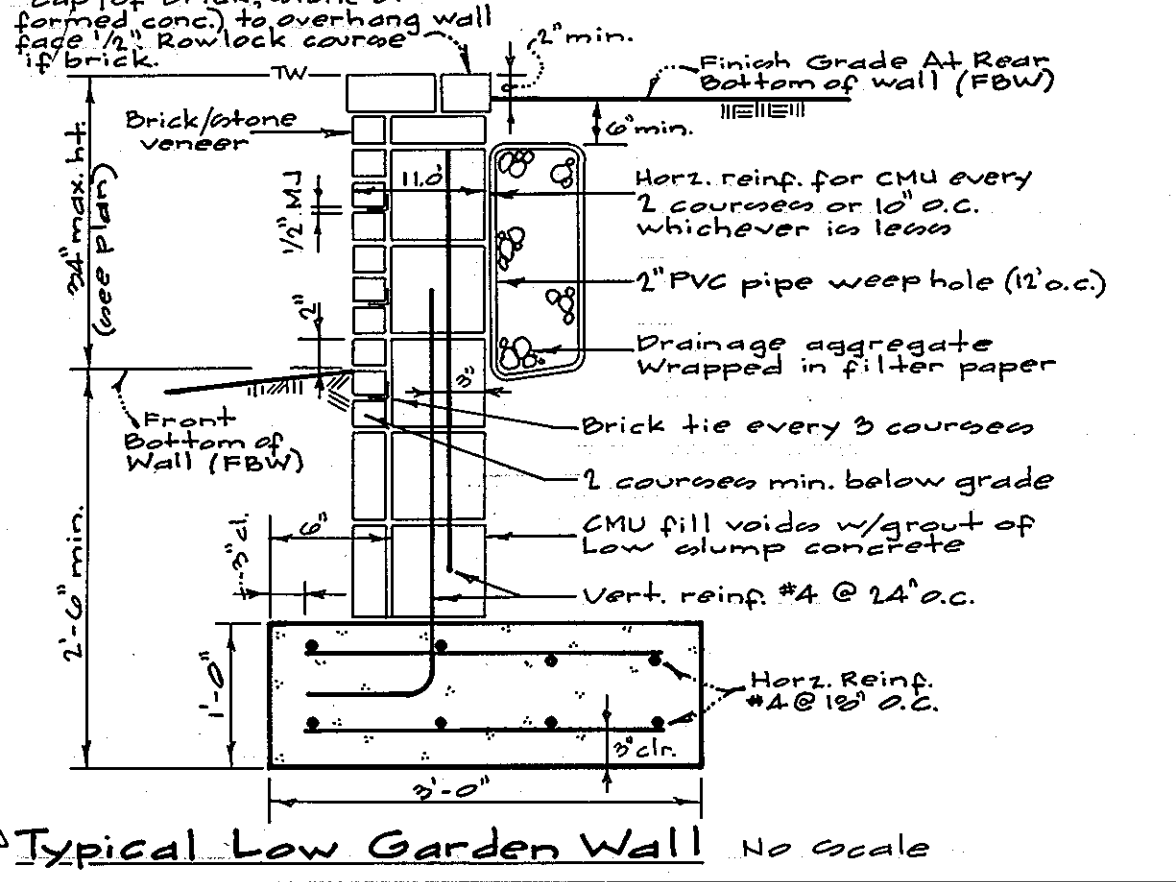 formed conc.) to overhang wall
face 1/2". Rowlock course
if brick.
2" min.
TW
Finish Grade At Rear
Bottom of wall (FBW)
Brick/stone
veneer
6" min.
34" max. ht.
(see plan)
1/2" M.J
11.0"
Horz. reinf. for CMU every
2 courses or 10" O.C.
whichever is less
2" PVC pipe weep hole (12' o.c.)
2"
Drainage aggregate
Wrapped in filter paper
3"
Front
Bottom of
Wall (FBW)
Brick tie every 3 courses
2 courses min. below grade
CMU fill voids w/grout of
Low slump concrete
6"
3" cl.
Vert. reinf. #4 @ 24" o.c.
2'-6" min.
1'-0"
Horz. Reinf.
#4 @ 18" O.C.
3" clr.
3'-0"
Typical Low Garden Wall No Scale